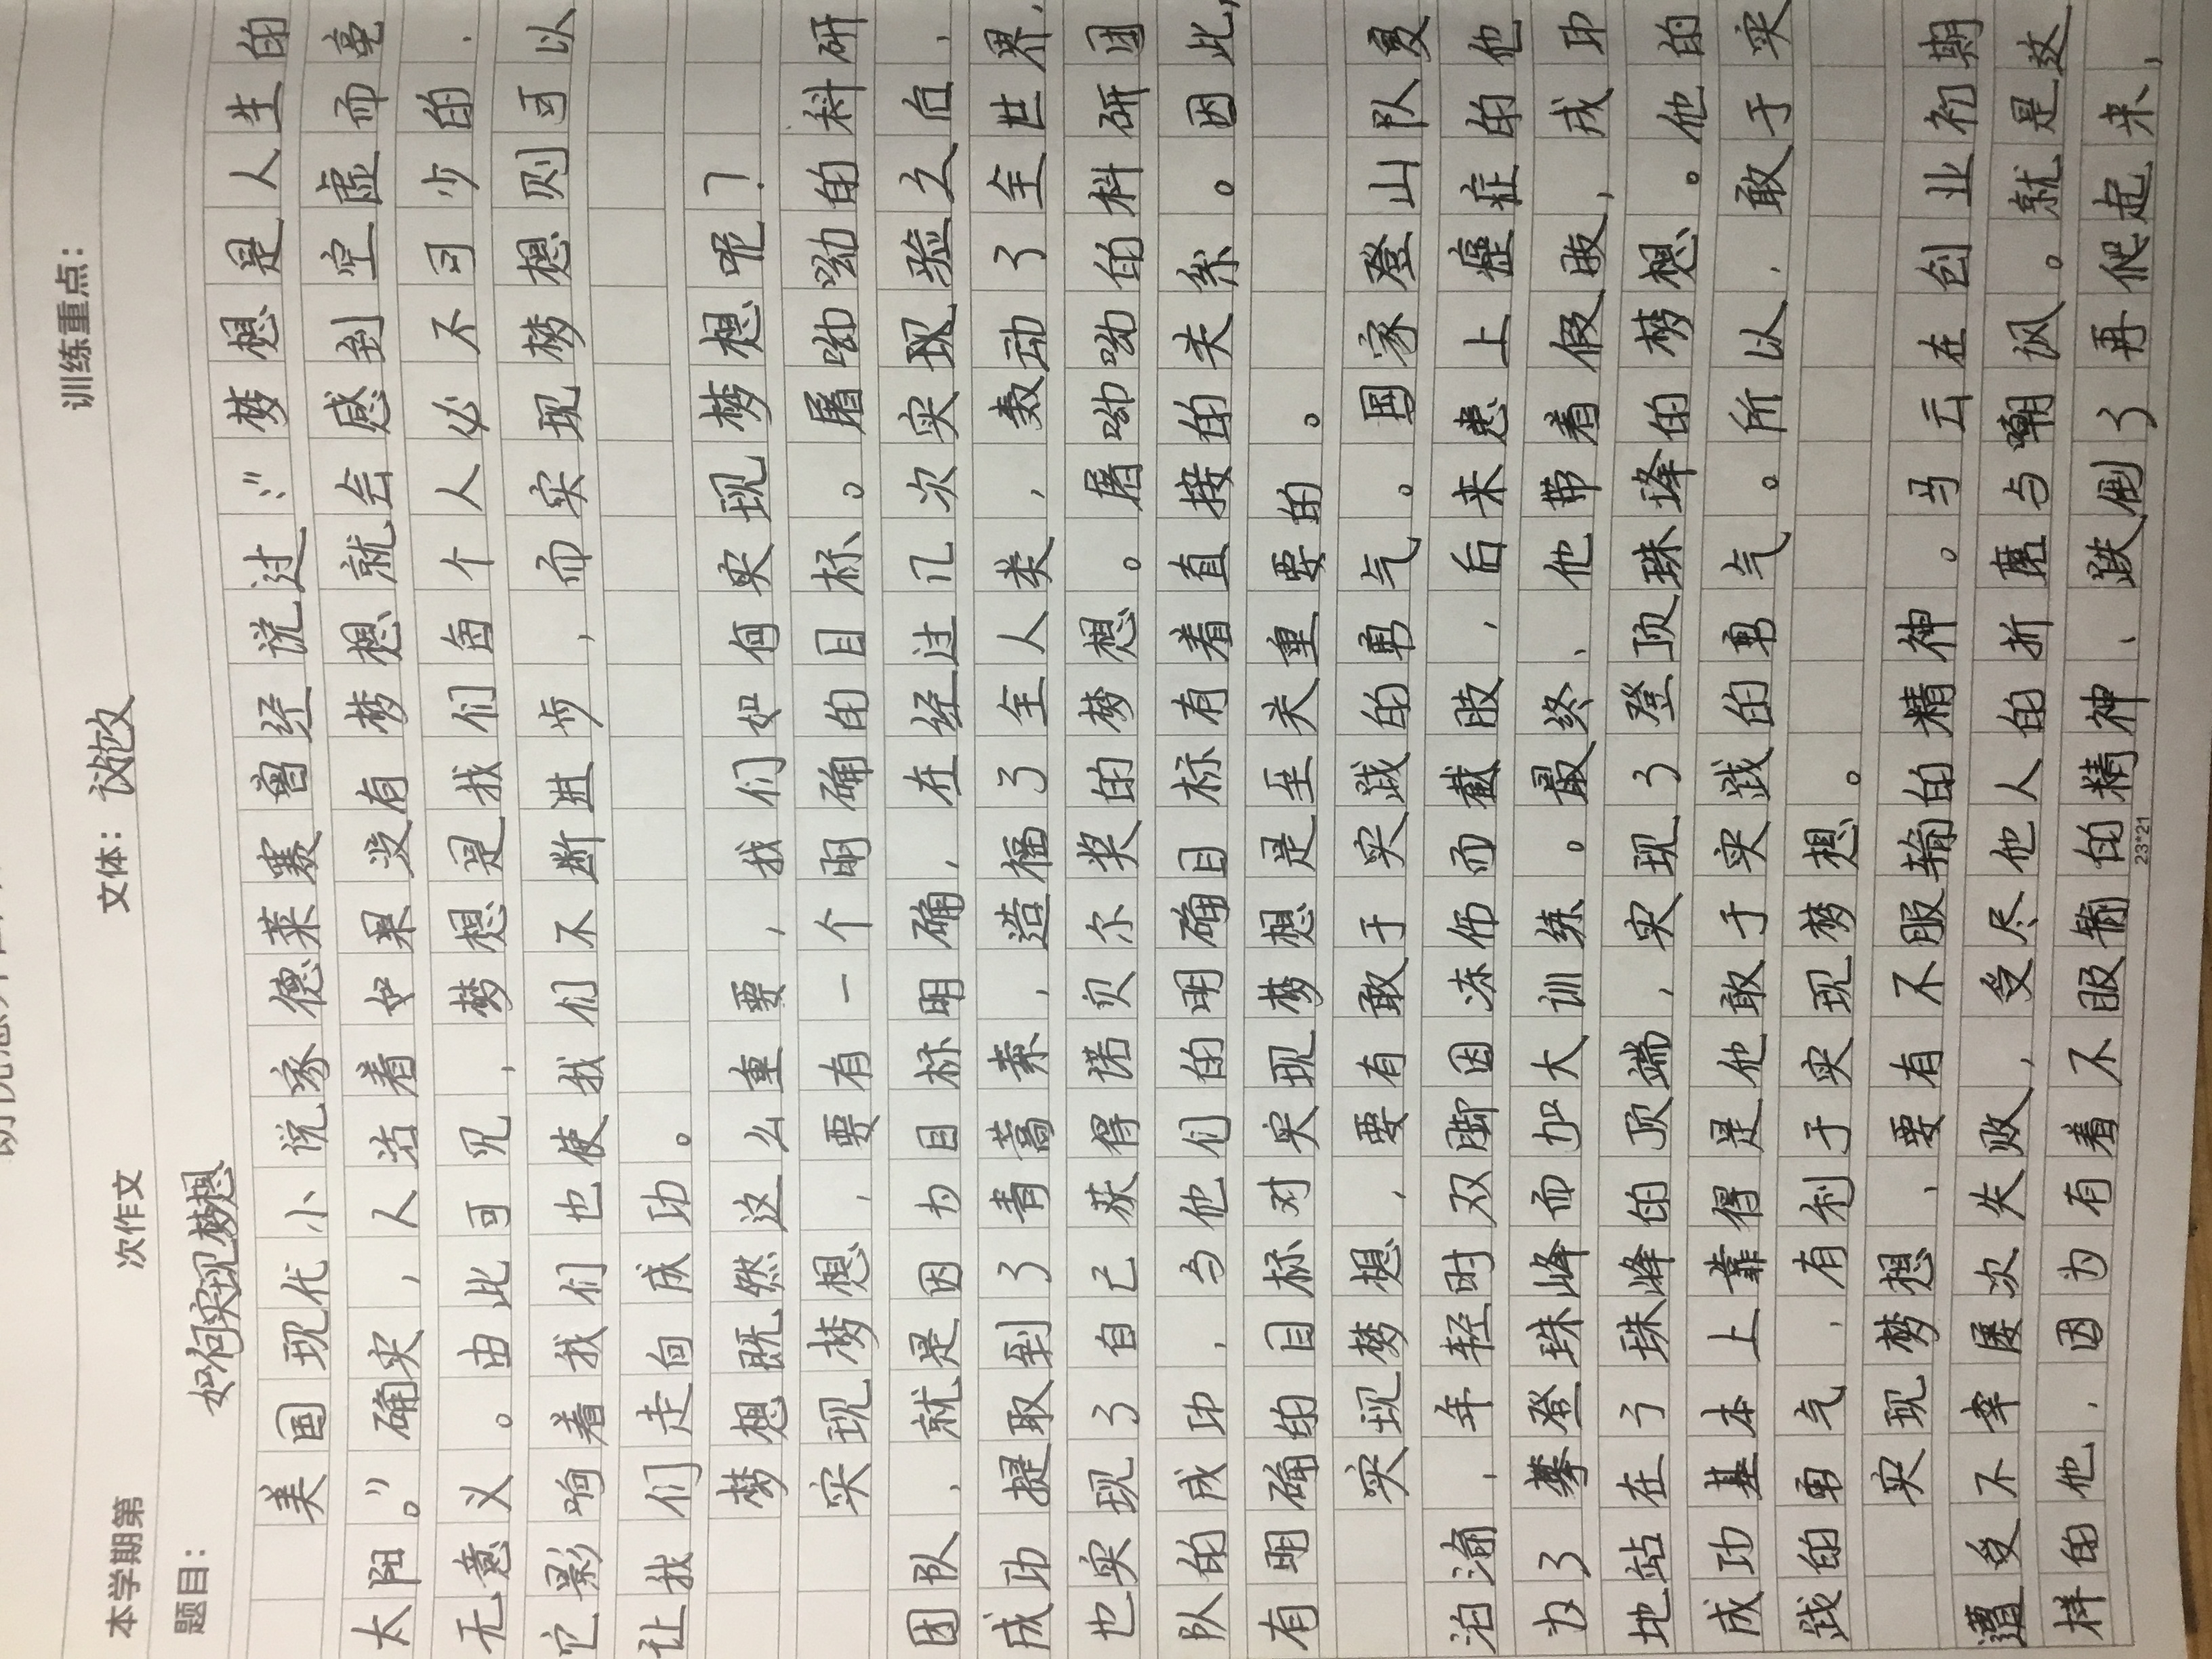 训练重点：
文体：议论文
本学期第 次作文
题目：如何实现梦想
美国现代小说家德莱塞曾经说过：“梦想是人生的
太阳。”确实，人活着如果没有梦想就会感到空虚而毫
无意义。由此可见，梦想是我们每个人必不可少的，
它影响着我们也使我们不断进步，而实现梦想则可以
让我们走向成功。
梦想既然这么重要，我们如何实现梦想呢？
实现梦想，要有一个明确的目标。屠呦呦的科研
团队，就是因为目标明确，在经过几次实现验之后，
成功提取到了青蒿素，造福了全人类，轰动了全世界，
也实现了自己获得诺贝尔奖的梦想。屠呦呦的科研团
队的成功，与他们的明确目标有着直接的关系。因此，
有明确的目标对实现梦想是至关重要的。
实现梦想，要有敢于实践的勇气。国家登山队夏
泊渝，年轻时双脚因冻伤而截肢，后来患上癌症的他
为了攀登珠峰而加大训练。最终，他带着假肢，成功
地站在了珠峰的顶端，实现了登顶珠峰的梦想。他的
成功基本上靠得是他敢于实践的勇气。所以，敢于实
践的勇气，有利于实现梦想。
实现梦想，要有不服输的精神。马云在创业初期
遭受不幸屡次失败，受尽他人的折磨与嘲讽。就是这
样的他，因为有着不服输的精神，跌倒了再爬起来，
23*21